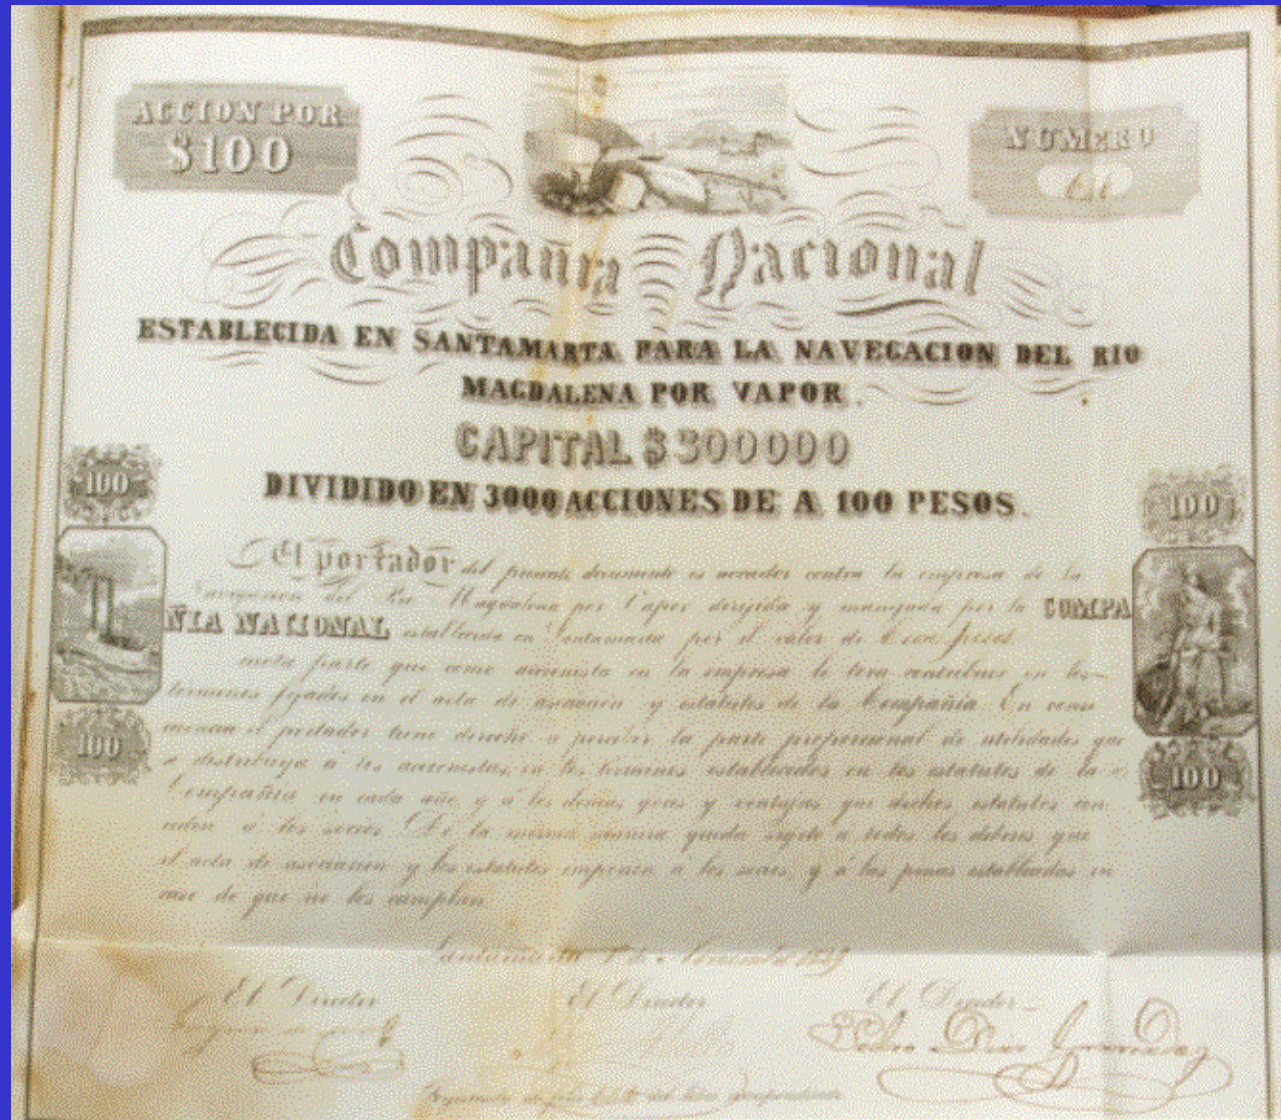 ACCION POR
$100
NUMERO
Compañia Nacional
ESTABLECIDA EN SANTAMARTA PARA LA NAVEGACION DEL RIO
MAGDALENA POR VAPOR.
CAPITAL $300000
DIVIDIDO EN 3000 ACCIONES DE A 100 PESOS.
100
100
100
100
El portador del presente documento es acreedor contra la empresa de la
Navegacion del Rio Magdalena por Vapor dirigida y manejada por la COMPA
ÑIA NACIONAL establecida en Santamarta por el valor de Cien pesos
parte que como accionista en la empresa le toca contribuir en los
terminos fijados en el acta de asociacion y estatutos de la Compañia. En conse
cuencia el portador tiene derecho a percibir la parte proporcional de utilidades que
se distribuya a los accionistas, en los terminos establecidos en los estatutos de la
Compañia en cada año, y á los demas goces y ventajas que dichos estatutos con
ceden a los socios. De la misma manera queda sujeto a todos los deberes que
el acta de asociacion y los estatutos imponen a los socios, y á las penas establecidas en
caso de que no los cumplan
Santamarta 1 de Noviembre
El Director
El Director
El Director
Pedro Diaz
del libro